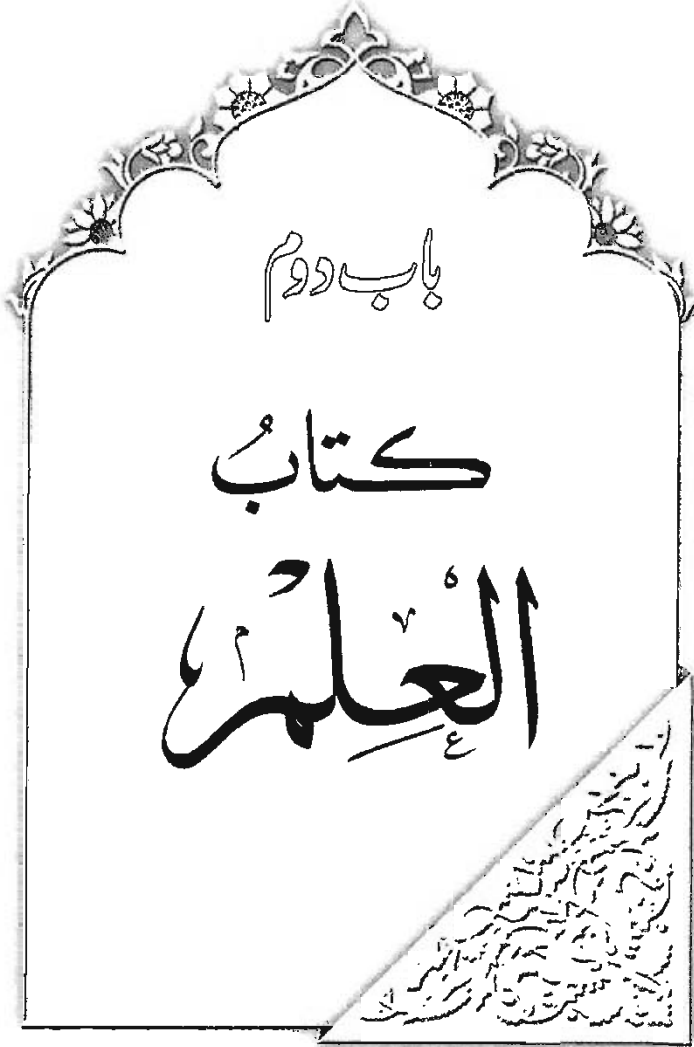 باب دوم
كتابُ
العِلْمِ